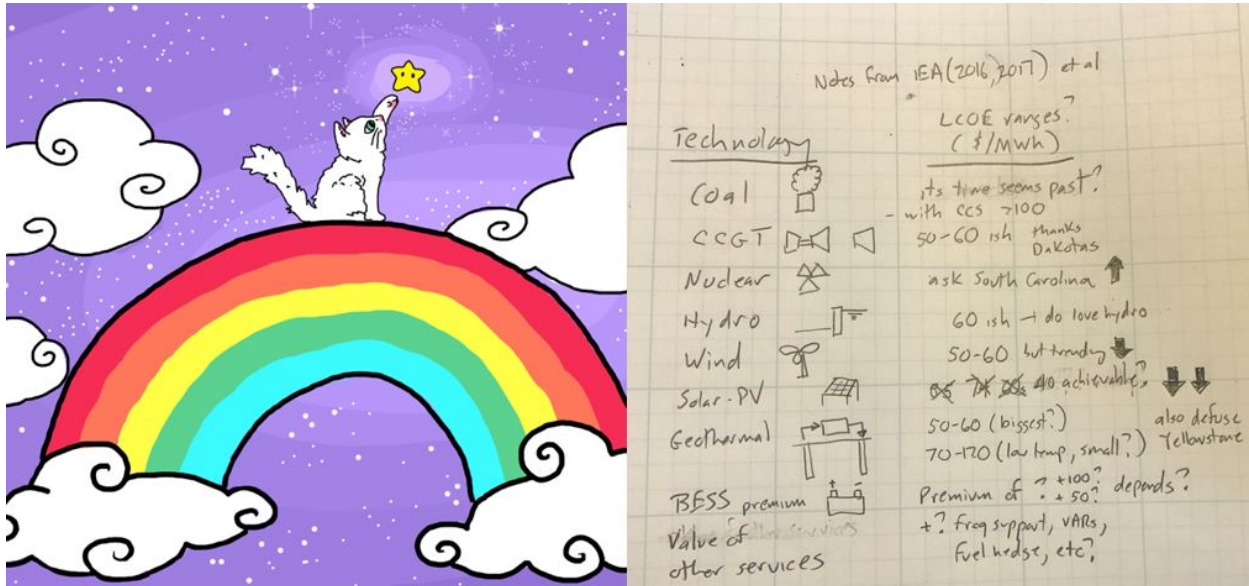 Notes from IEA (2016, 2017) et al
Technology
LCOE ranges?
($/MWh)
Coal
its time seems past?
- with CCS >100
CCGT
50-60 ish thanks
Dakotas
Nuclear
ask South Carolina
Hydro
60 ish - do love hydro
Wind
50-60 but trending
Solar-PV
40 achievable?
Geothermal
50-60 (biggest?)
also defuse
Yellowstone
70-120 (low temp, small?)
BESS premium
+ -
Premium of ? +100? depends?
+50?
Value of
other services
+? freq support, VARs,
fuel hedge, etc?